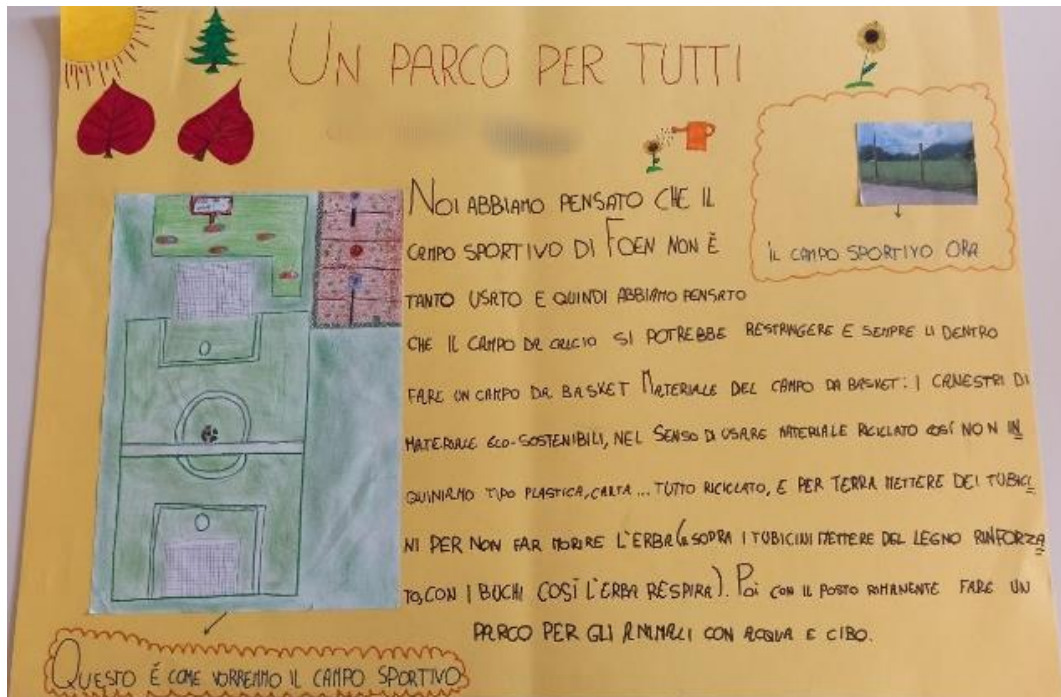 UN PARCO PER TUTTI
NOI ABBIAMO PENSATO CHE IL
CAMPO SPORTIVO DI FOEN NON È
TANTO USATO E QUINDI ABBIAMO PENSATO
CHE IL CAMPO DA CALCIO SI POTREBBE RESTRINGERE E SEMPRE LI DENTRO
FARE UN CAMPO DA BASKET MATERIALE DEL CAMPO DA BASKET: I CANESTRI DI
MATERIALE ECO-SOSTENIBILI, NEL SENSO DI USARE MATERIALE RICICLATO COSÍ NON IN
QUINIAMO TIPO PLASTICA, CARTA... TUTTO RICICLATO, E PER TERRA METTERE DEI TUBICI
NI PER NON FAR MORIRE L'ERBA (E SOPRA I TUBICINI METTERE DEL LEGNO RINFORZA
TO, CON I BUCHI COSÍ L'ERBA RESPIRA). POI CON IL POSTO RIMANENTE FARE UN
PARCO PER GLI ANIMALI CON ACQUA E CIBO.
IL CAMPO SPORTIVO ORA
QUESTO É COME VORREMMO IL CAMPO SPORTIVO